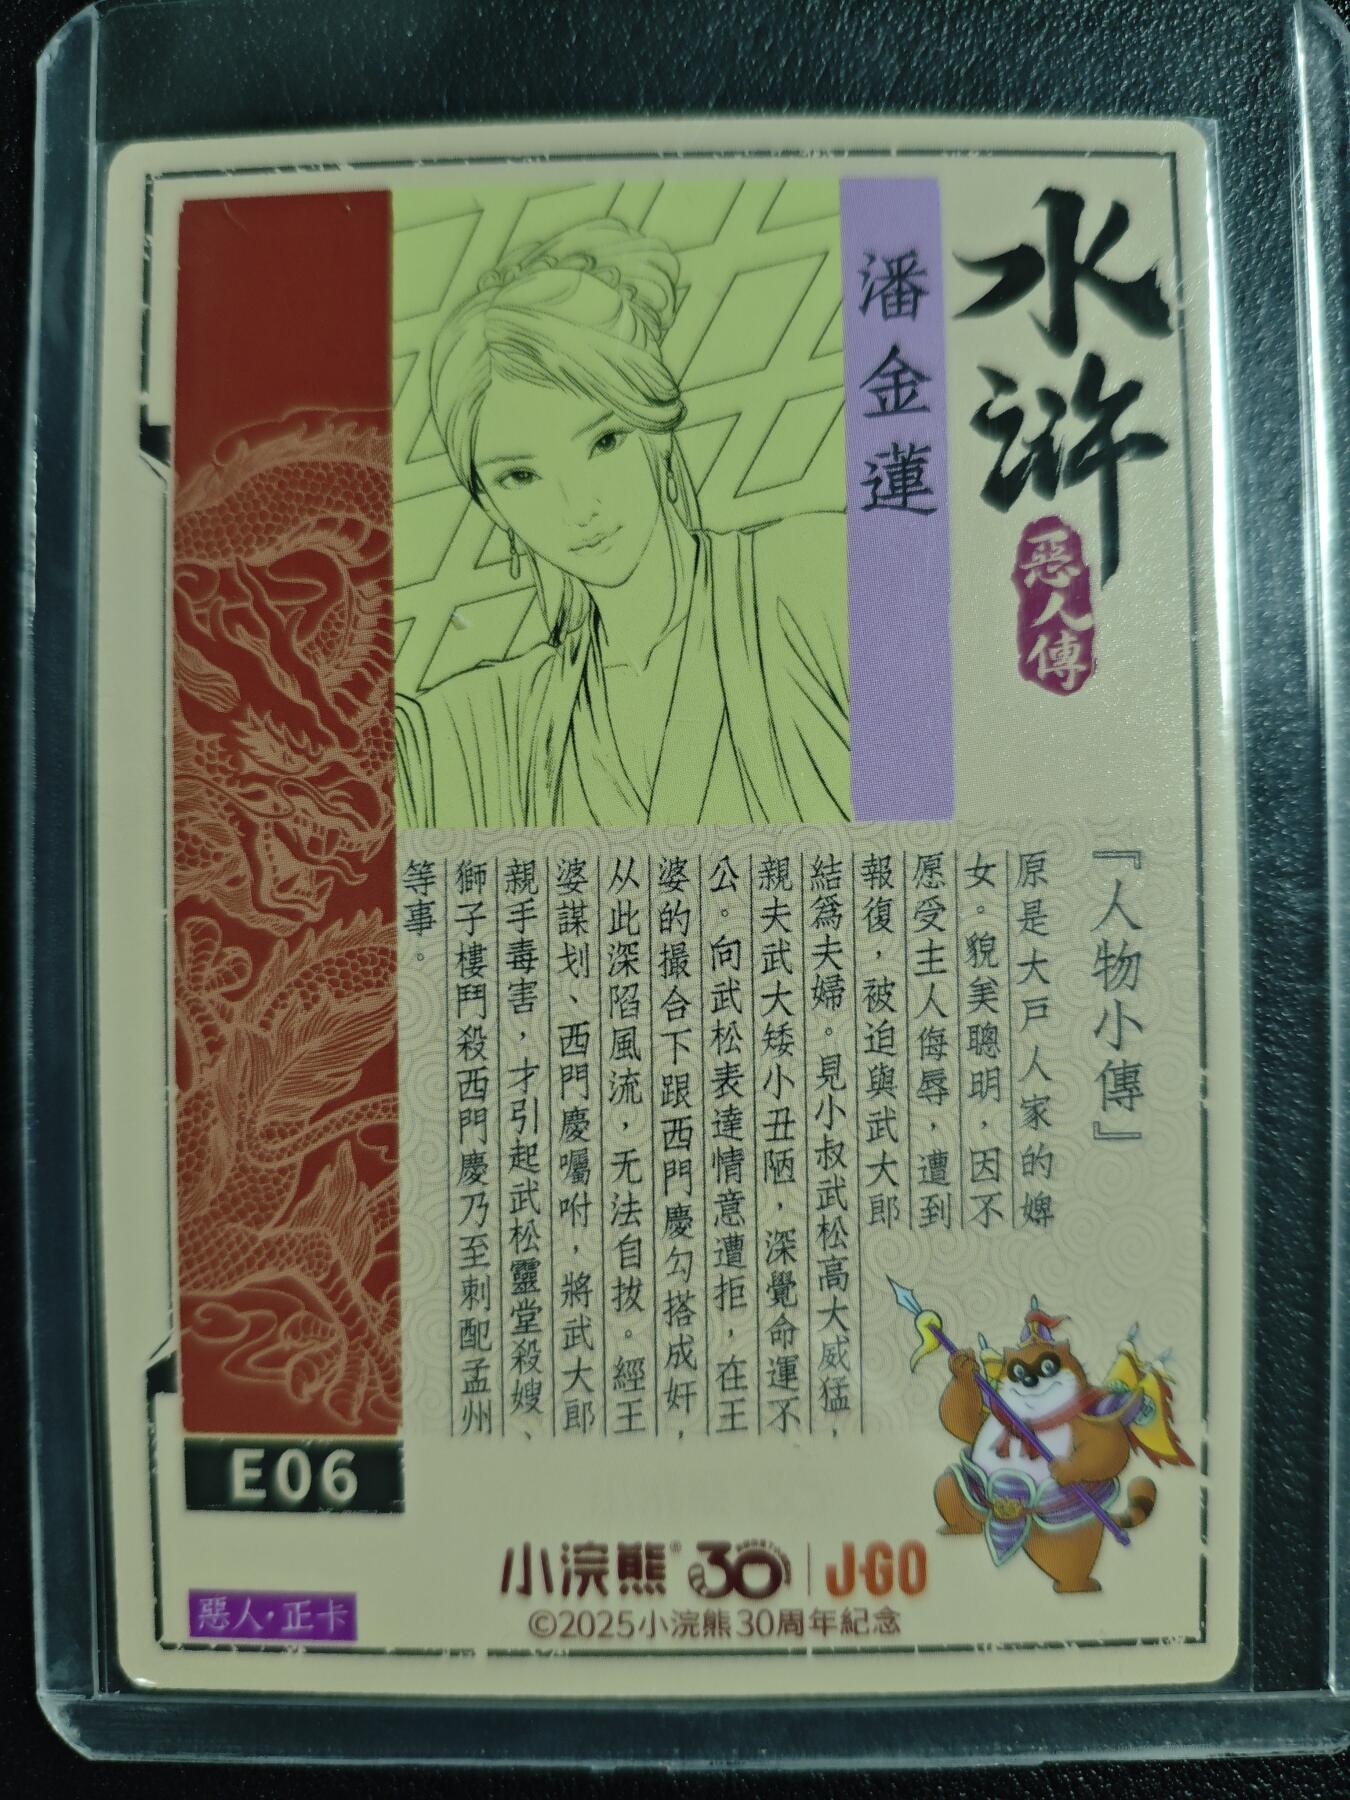 水滸
惡人傳
潘金蓮
『人物小傳』
原是大戸人家的婢
女。貌美聰明，因不
愿受主人侮辱，遭到
報復，被迫與武大郎
結爲夫婦。見小叔武松高大威猛，
親夫武大矮小丑陋，深覺命運不
公。向武松表達情意遭拒，在王
婆的撮合下跟西門慶勾搭成奸，
从此深陷風流，无法自拔。經王
婆謀划、西門慶囑咐，將武大郎
親手毒害，才引起武松靈堂殺嫂、
獅子樓鬥殺西門慶乃至刺配孟州
等事。
E06
惡人·正卡
小浣熊® 30 | J·GO
©2025小浣熊30周年紀念